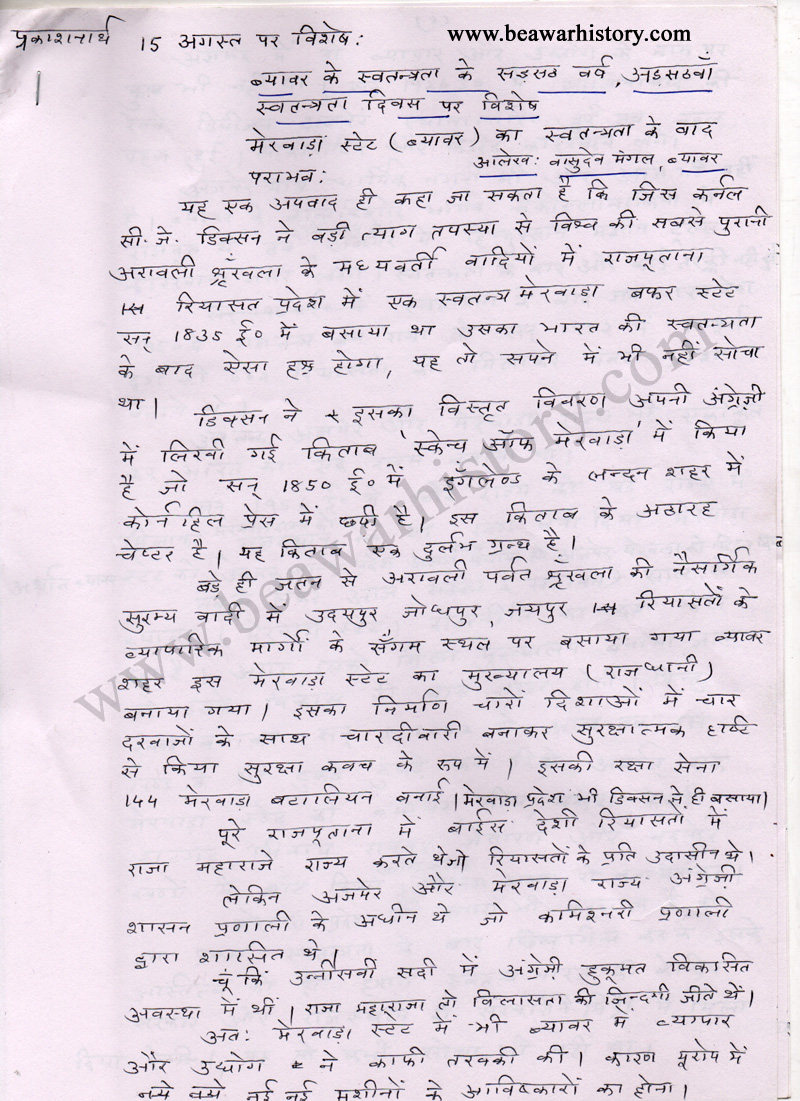 www.beawarhistory.com
प्रकाशनार्थ 15 अगस्त पर विशेष:
ब्यावर के स्वतन्त्रता के सड़सठ वर्ष, अड़सठवाँ
स्वतन्त्रता दिवस पर विशेष
मेरवाड़ा स्टेट (ब्यावर) का स्वतन्त्रता के बाद
पराभव:
आलेख: वासुदेव मंगल, ब्यावर
यह एक अपवाद ही कहा जा सकता है कि जिस कर्नल
सी. जे. डिक्सन ने बड़ी त्याग तपस्या से विश्व की सबसे पुरानी
अरावली श्रृँखला के मध्यवर्ती वादियों में राजपूताना
रियासत प्रदेश में एक स्वतन्त्र मेरवाड़ा बफर स्टेट
सन् 1835 ई० में बसाया था उसका भारत की स्वतन्त्रता
के बाद ऐसा हश्र होगा, यह तो सपने में भी नहीं सोचा
था।
डिक्सन ने इसका विस्तृत विवरण अपनी अंग्रेजी
में लिखी गई किताब 'स्केच ऑफ मेरवाड़ा' में किया
है जो सन् 1850 ई० में इँगलैण्ड के लन्दन शहर में
कोर्नहिल प्रेस में छपी है। इस किताब के अठारह
चेप्टर है। यह किताब एक दुर्लभ ग्रन्थ है।
बडे ही जतन से अरावली पर्वत श्रृँखला की नैसर्गिक
सुरम्य वादी में उदयपुर जोधपुर, जयपुर रियासतों के
व्यापारिक मार्गो के सँगम स्थल पर बसाया गया ब्यावर
शहर इस मेरवाड़ा स्टेट का मुख्यालय (राजधानी)
बनाया गया। इसका निर्माण चारों दिशाओं में चार
दरवाजों के साथ चारदीवारी बनाकर सुरक्षात्मक दृष्टि
से किया सुरक्षा कवच के रूप में। इसकी रक्षा सेना
144 मेरवाड़ा बटालियन बनाई। मेरवाड़ा प्रदेश भी डिक्सन ने ही बसाया।
पूरे राजपूताना में बाईस देशी रियासतों में
राजा महाराजे राज्य करते थे जो रियासतों के प्रति उदासीन थे।
लेकिन अजमेर और मेरवाड़ा राज्य अंग्रेजी
शासन प्रणाली के अधीन थे जो कमिश्नरी प्रणाली
द्वारा शासित थे।
चूं कि उन्नीसवीं सदी में अंग्रेजी हुकूमत विकसित
अवस्था में थीं। राजा महाराजा तो विलासता की जिन्दगी जीते थें।
अतः मेरवाड़ा स्टेट में भी ब्यावर में व्यापार
और उद्योग ने काफी तरक्की की। कारण यूरोप में
नये नये नई नई मशीनों के आविष्कारों का होना।
www.beawarhistory.com